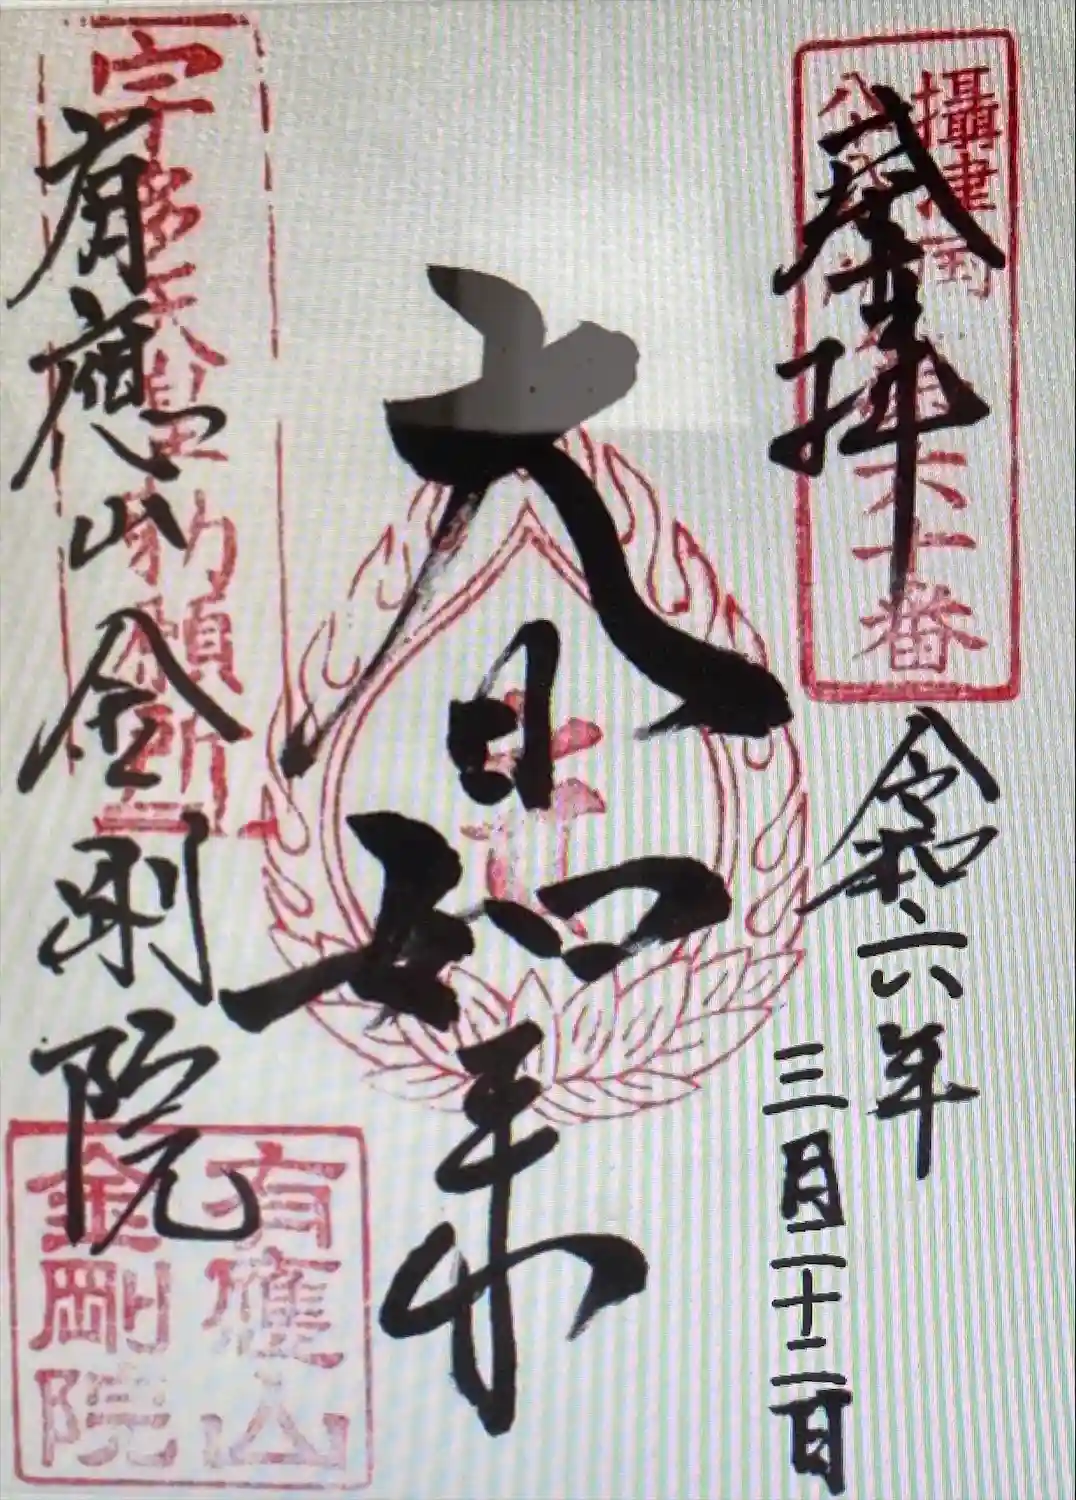 攝津国
八十八所第六十番
奉拝
令和六年
三月二十二日
大日如来
宇多天皇勅願所
有應山金剛院
有應山
金剛院